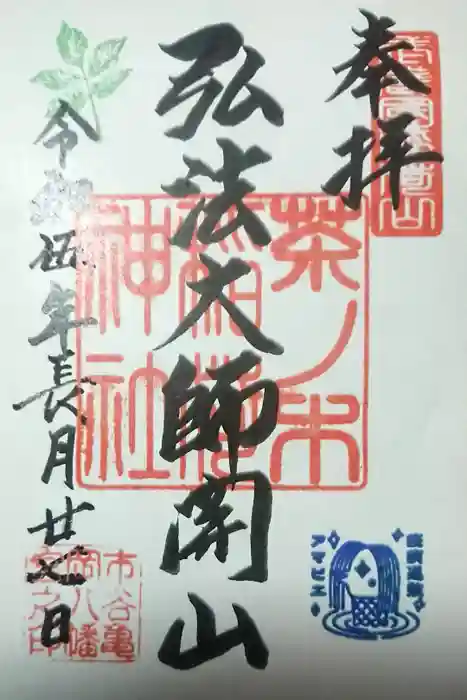 奉拝
弘法大師開山
令和伍年長月廿日
茶ノ木
稲荷
神社
市谷亀
岡八幡
宮之印
アマビエ